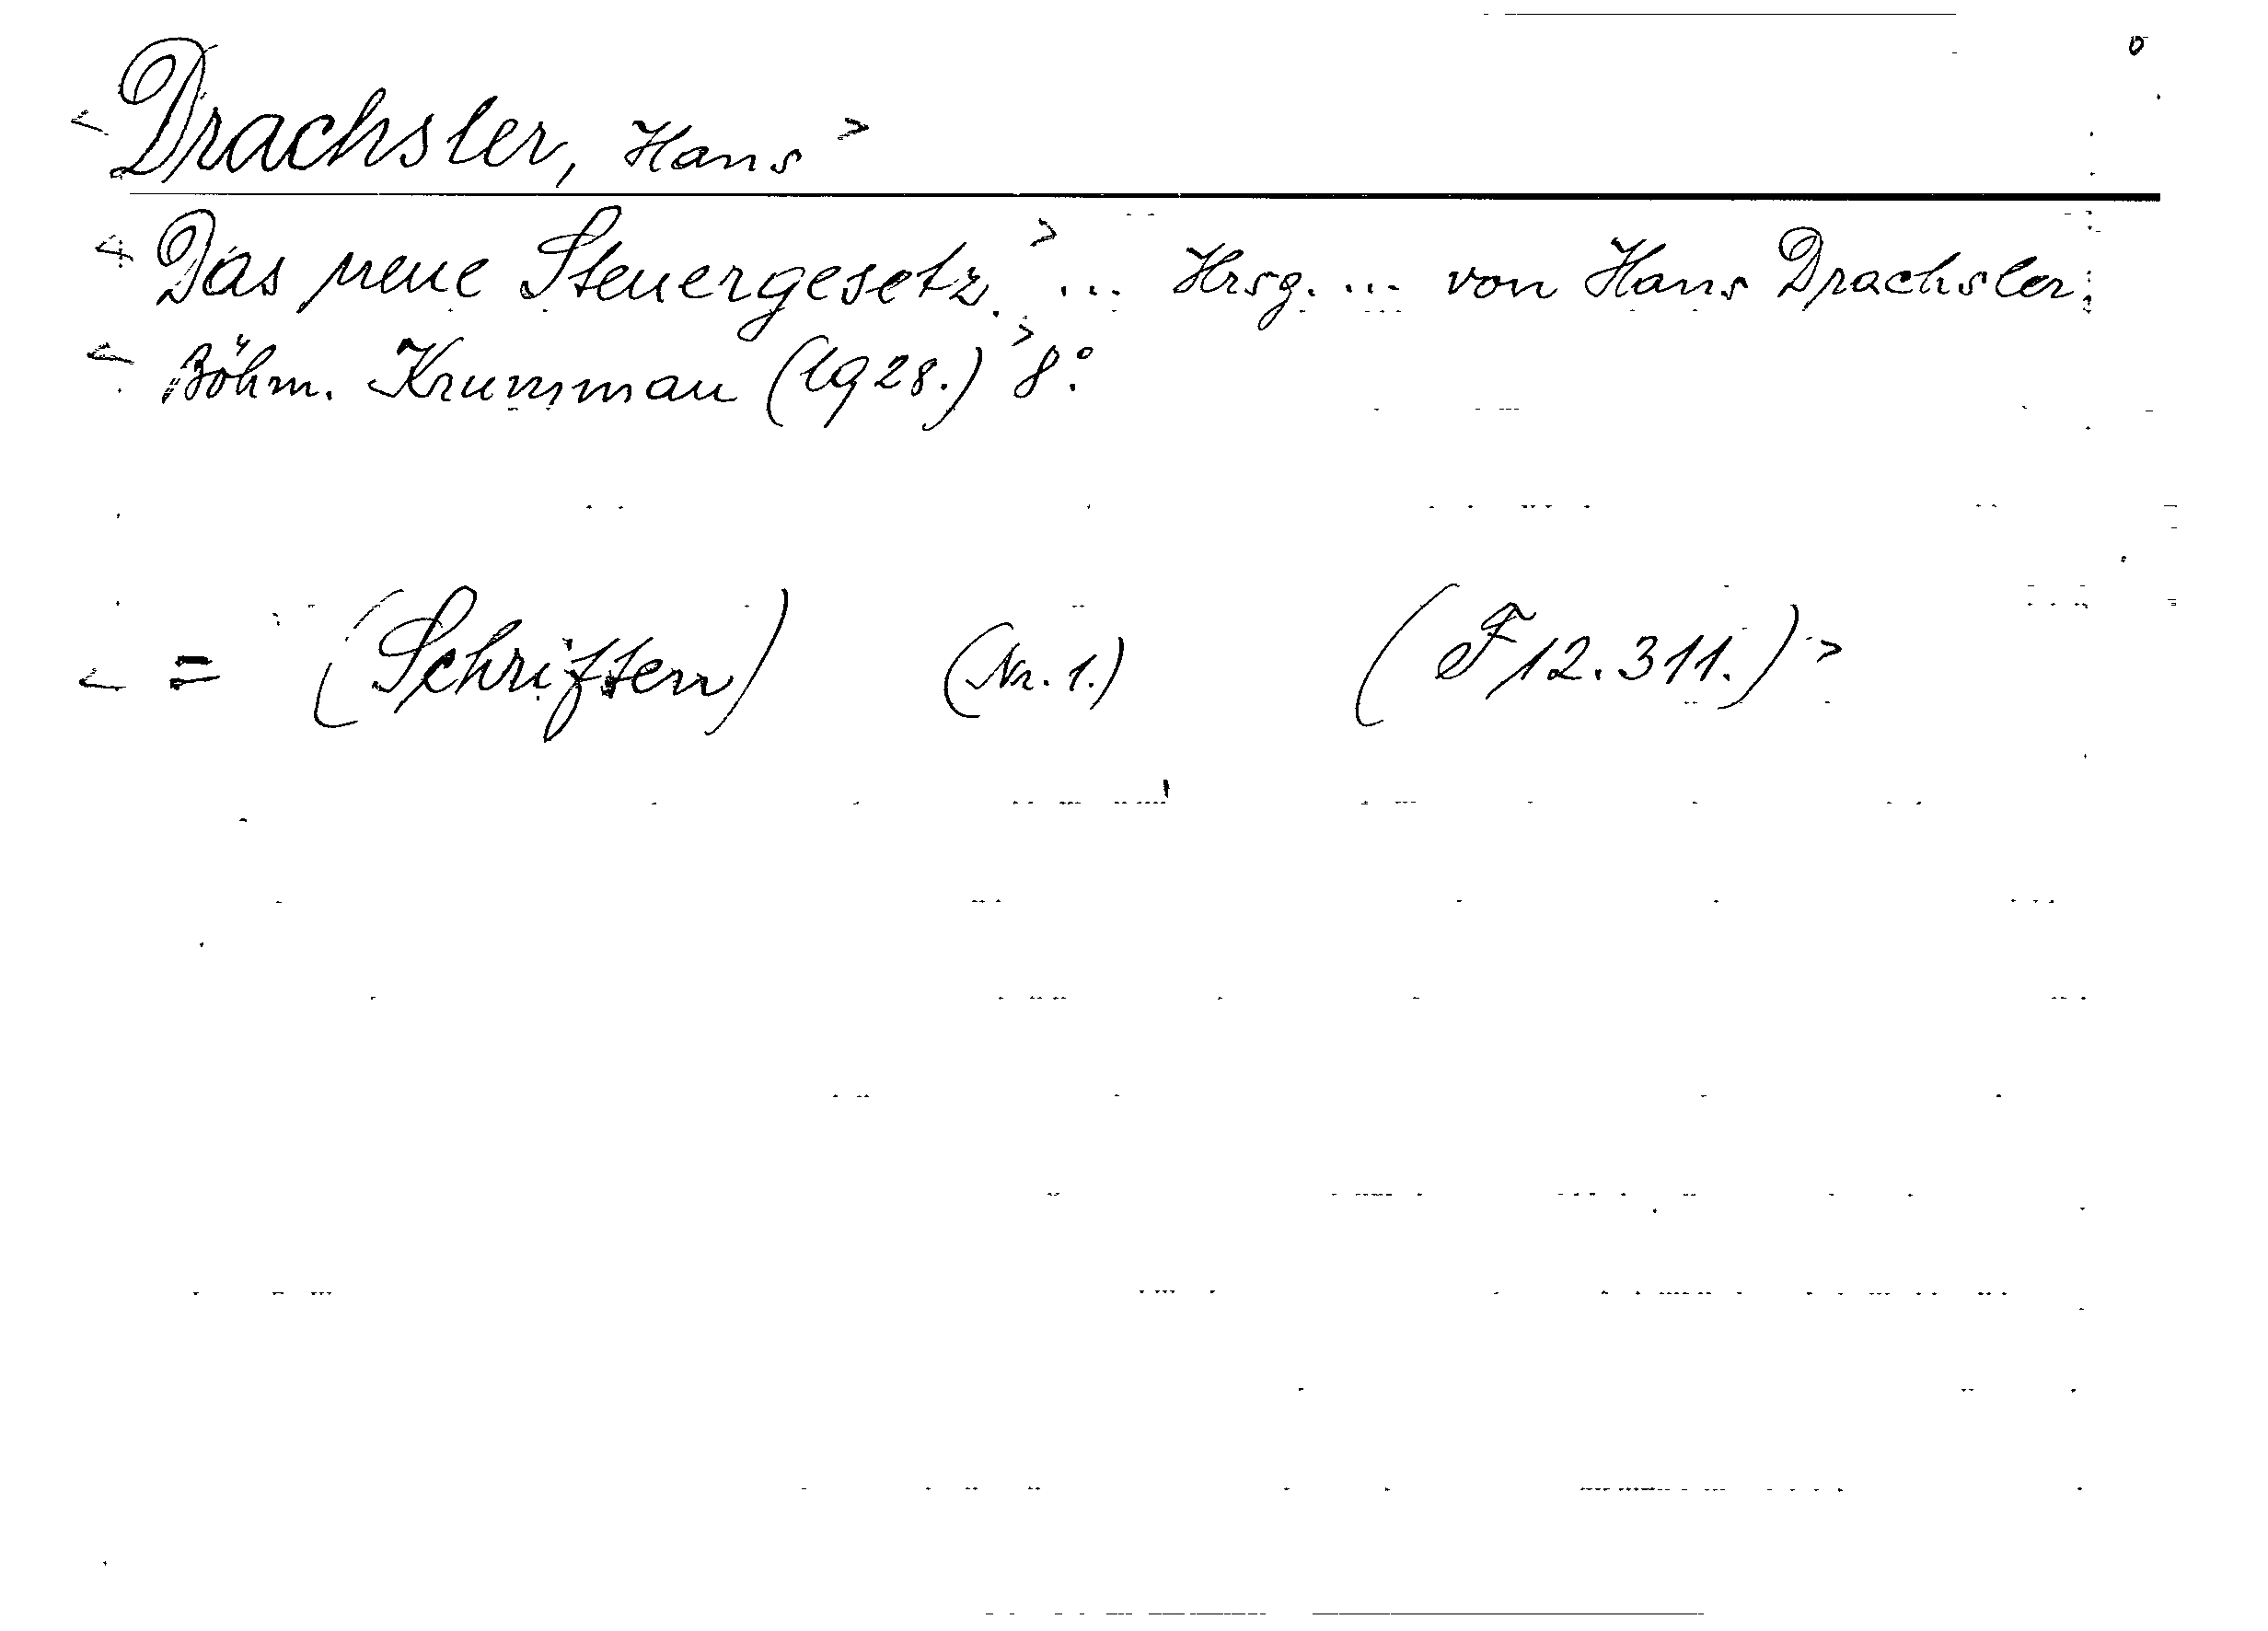 <Drachsler, Hans>
<Das neue Steuergesetz.> ... Hrsg. ... von Hans Drachsler.
<Böhm. Krummau (1928.)> 8°.
<= (Schriften) (Nr. 1.) (F 12.311.)>